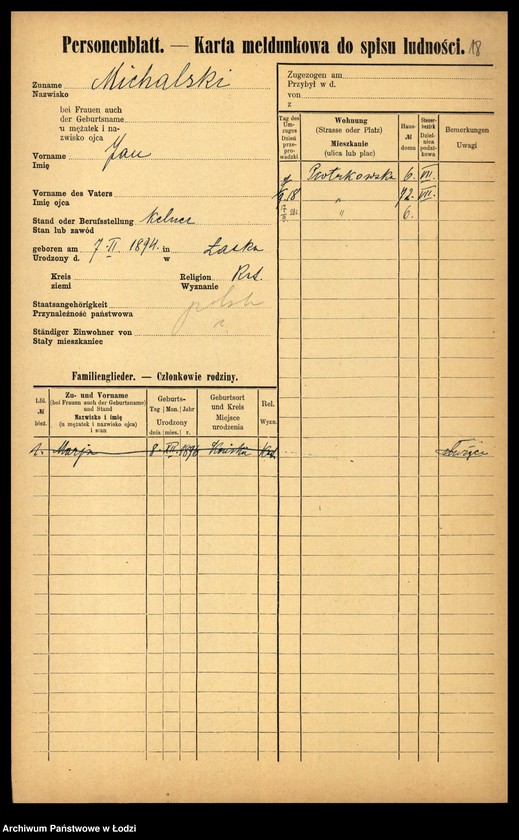 Personenblatt. — Karta meldunkowa do spisu ludności. 18
Zuname Michalski
Nazwisko
bei Frauen auch
der Geburtsname
u mężatek i na-
zwisko ojca
Vorname Jan
Imię
Vorname des Vaters
Imię ojca
Stand oder Berufsstellung Kelner
Stan lub zawód
geboren am 7. II. 1894. in Łasku
Urodzony d. w
Kreis
ziemi
Religion
Wyznanie
Staatsangehörigkeit polsk
Przynależność państwowa
Ständiger Einwohner von
Stały mieszkaniec
Zugezogen am
Przybył w d.
von
z
Tag des Um-zuges Dzień prze-prowadzki
Wohnung (Strasse oder Platz) Mieszkanie (ulica lub plac)
Haus- № domu
Steuer-bezirk Dziel-nica podat-kowa
Bemerkungen Uwagi
Piotrkowska 6. VII.
9.18 " 72. VII.
" 6.
Familienglieder. — Członkowie rodziny.
Lfd. № bież.
Zu- und Vorname (bei Frauen auch der Geburtsname) und Stand Nazwisko i imię (u mężatek i nazwisko ojca) i stan
Geburts- Tag Mon. Jahr Urodzony dnia mies. r.
Geburtsort und Kreis Miejsce urodzenia
Rel. Wyzn.
1. Marja 8. XII. 1896
Archiwum Państwowe w Łodzi